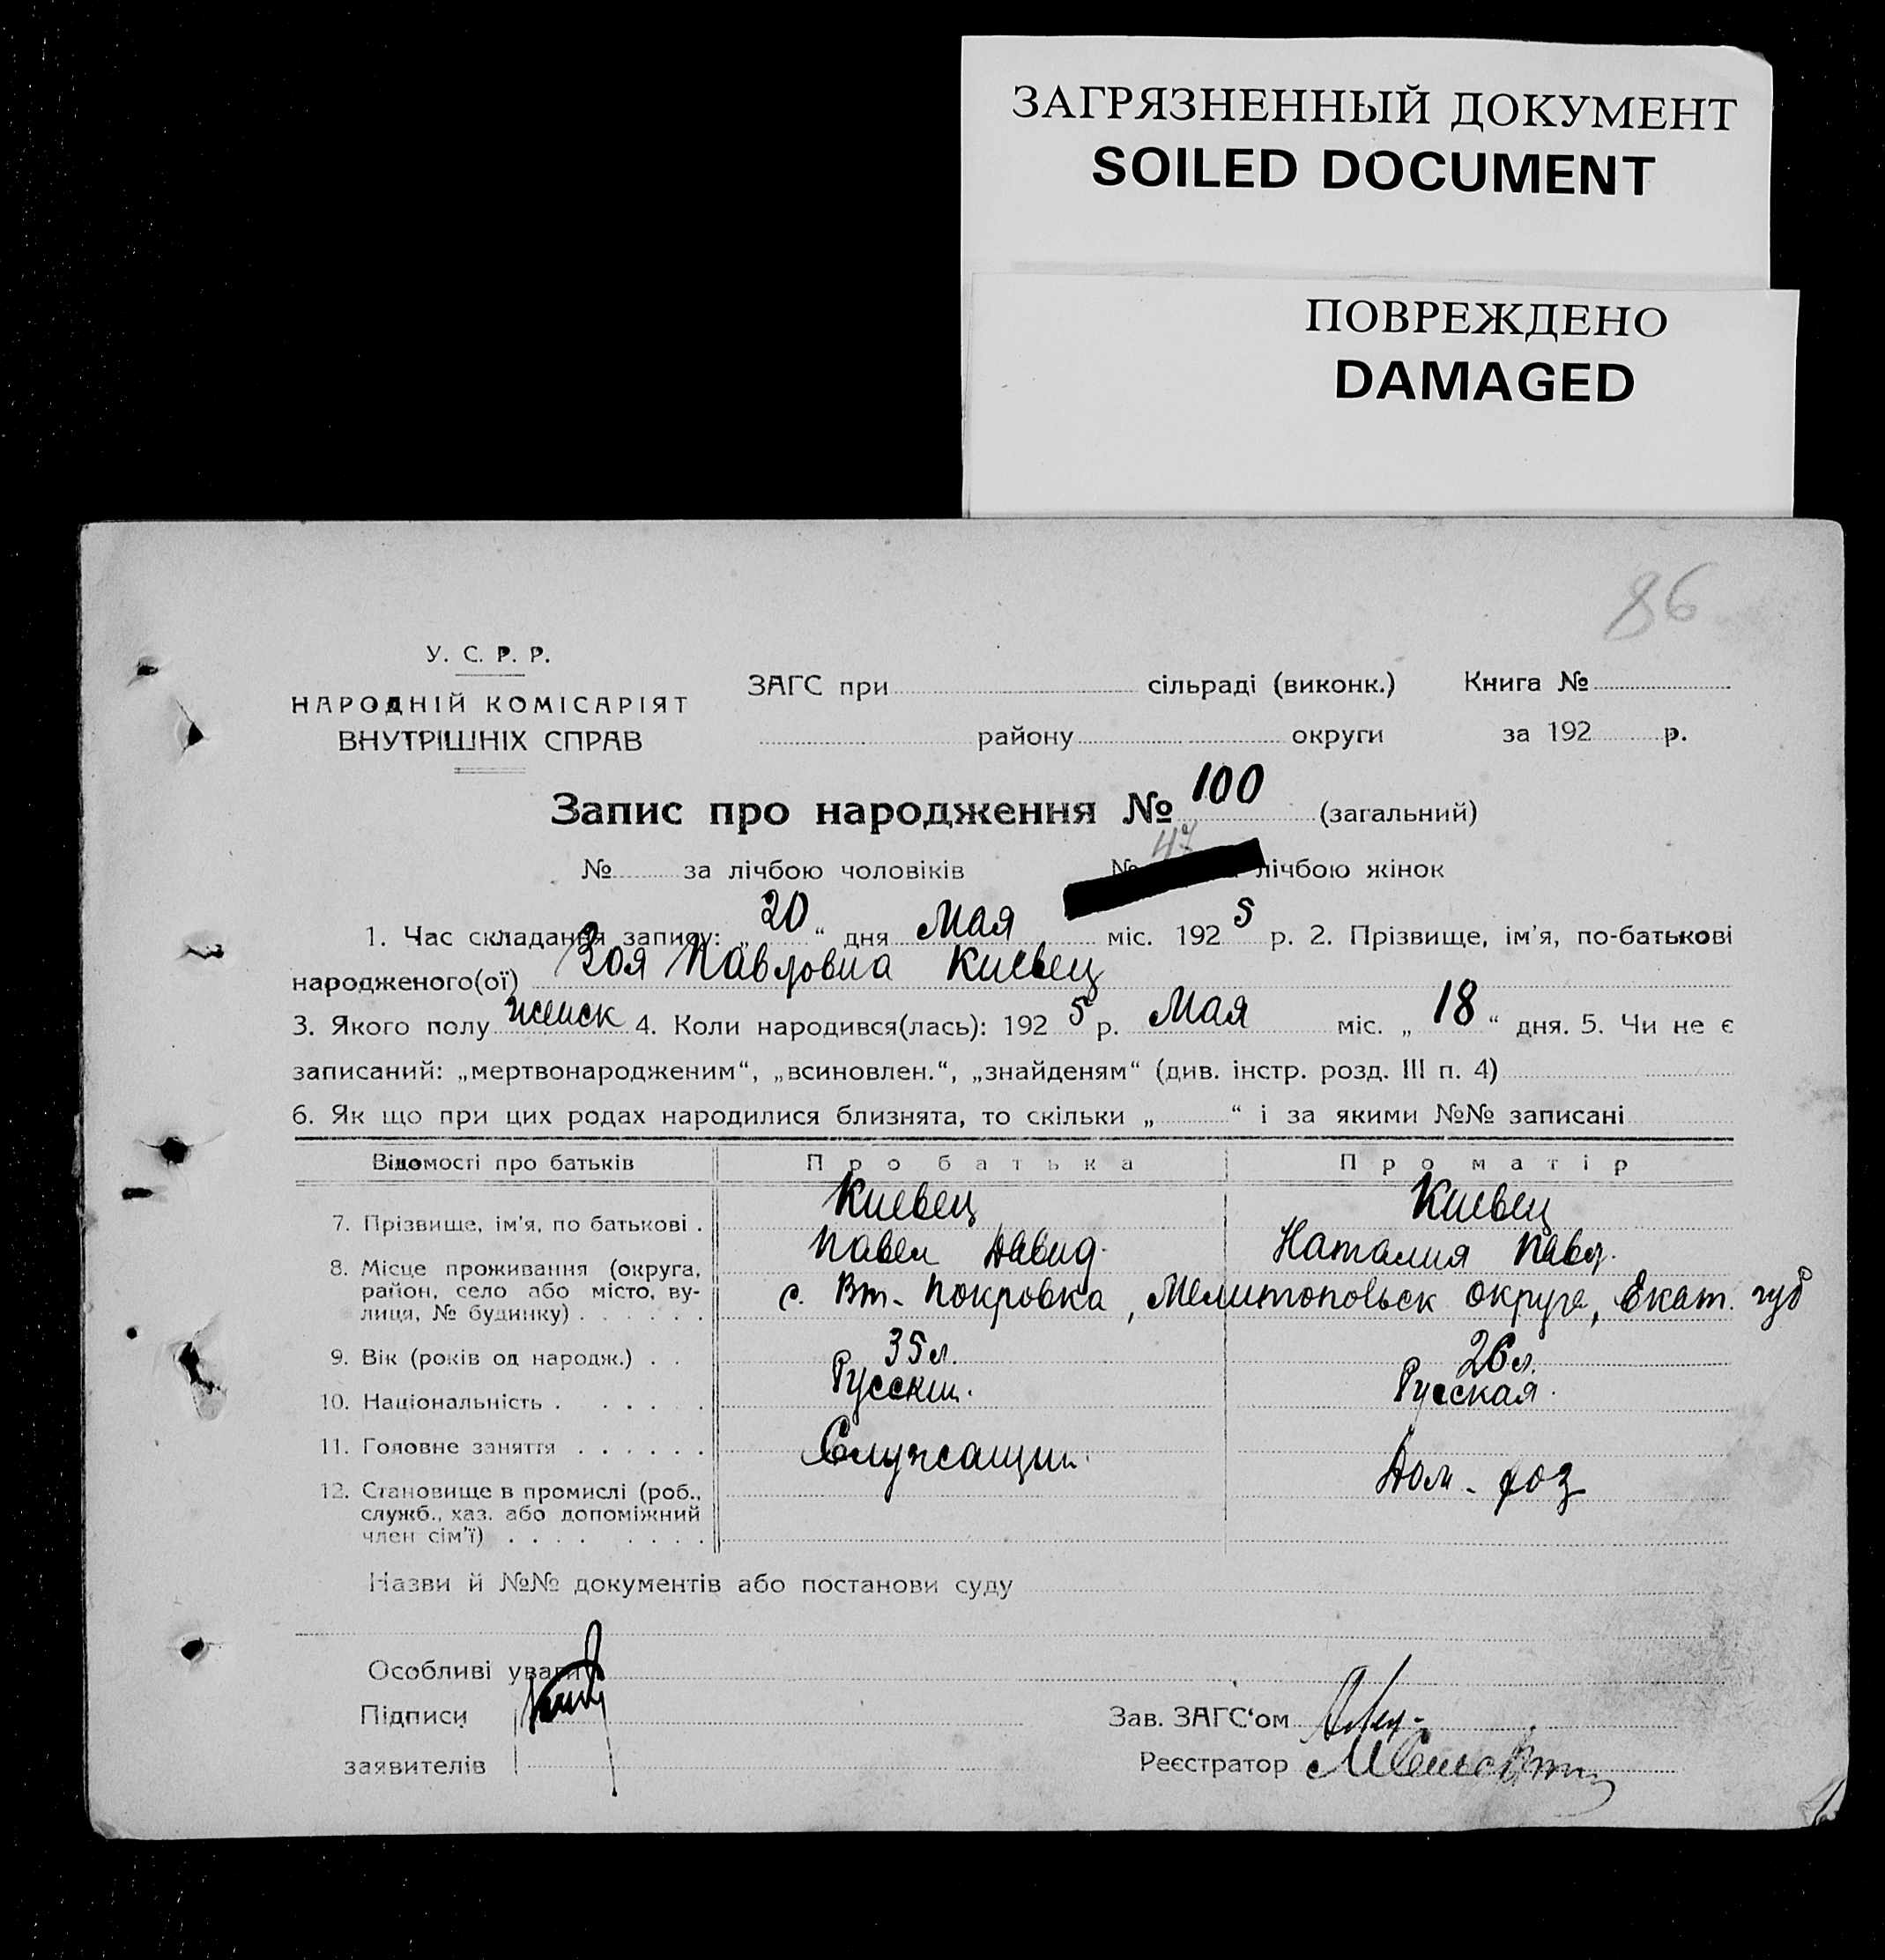 ЗАГРЯЗНЕННЫЙ ДОКУМЕНТ
SOILED DOCUMENT
ПОВРЕЖДЕНО
DAMAGED
86
У. С. Р. Р.
НАРОДНІЙ КОМІСАРІЯТ
ВНУТРІШНІХ СПРАВ
ЗАГС при сільраді (виконк.) Книга №
району округи за 192 р.
Запис про народження № 100 (загальний)
№ за лічбою чоловіків № 47 лічбою жінок
1. Час складання запису: „20“ дня Мая міс. 1925 р. 2. Прізвище, ім'я, по-батькові
народженого(ої) Зоя Павловна Киевец
3. Якого полу женск 4. Коли народився(лась): 1925 р. Мая міс. „18“ дня. 5. Чи не є
записаний: „мертвонародженим“, „всиновлен.“, „знайденям“ (див. інстр. розд. III п. 4)
6. Як що при цих родах народилися близнята, то скільки „ “ і за якими №№ записані
Відомості про батьків Про батька Про матір
7. Прізвище, ім'я, по батькові . Киевец Киевец
Павел Давид. Наталия Павл.
8. Місце проживання (округа,
район, село або місто, ву-
лиця, № будинку) . . . . . . с. Вт. Покровка, Мелитопольск округа, Екат. губ
9. Вік (років од народж.) . . 35 л. 26 л.
10. Національність . . . . . Русский. Русская.
11. Головне заняття . . . . . . Служащий. Дом. хоз
12. Становище в промислі (роб.,
служб., хаз. або допоміжний
член сім'ї) . . . . . . . .
Назви й №№ документів або постанови суду
Особливі уваги
Підписи
заявителів
Зав. ЗАГС'ом
Реєстратор